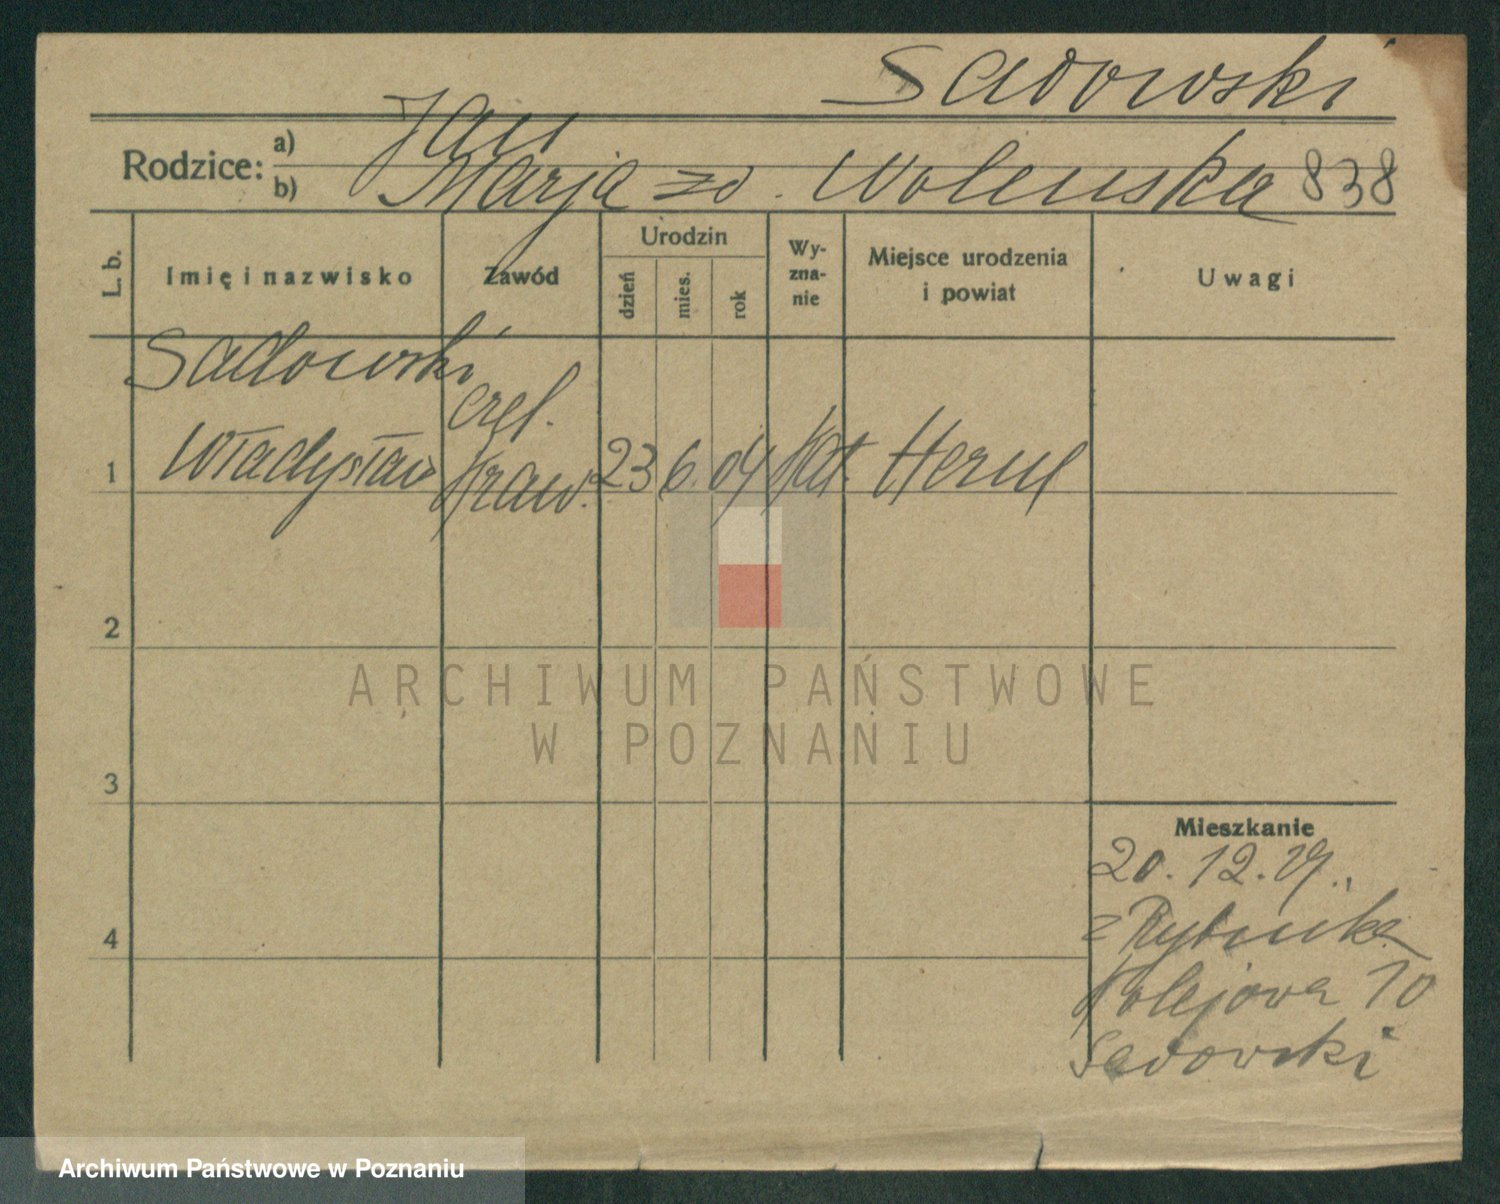 Sadowski
Rodzice: a) Jan
b) Marja zd. Wolenska 838
L. b. Imię i nazwisko Zawód Urodzin dzień mies. rok Wyzna-nie Miejsce urodzenia i powiat Uwagi
Sadowski
czel.
1 Władysław Kraw. 23 6. 04 Kat. Herne
2
ARCHIWUM PAŃSTWOWE
W POZNANIU
3
Mieszkanie
20. 12.
z Rybnika
4
Kolejowa 10
Sadowski
Archiwum Państwowe w Poznaniu